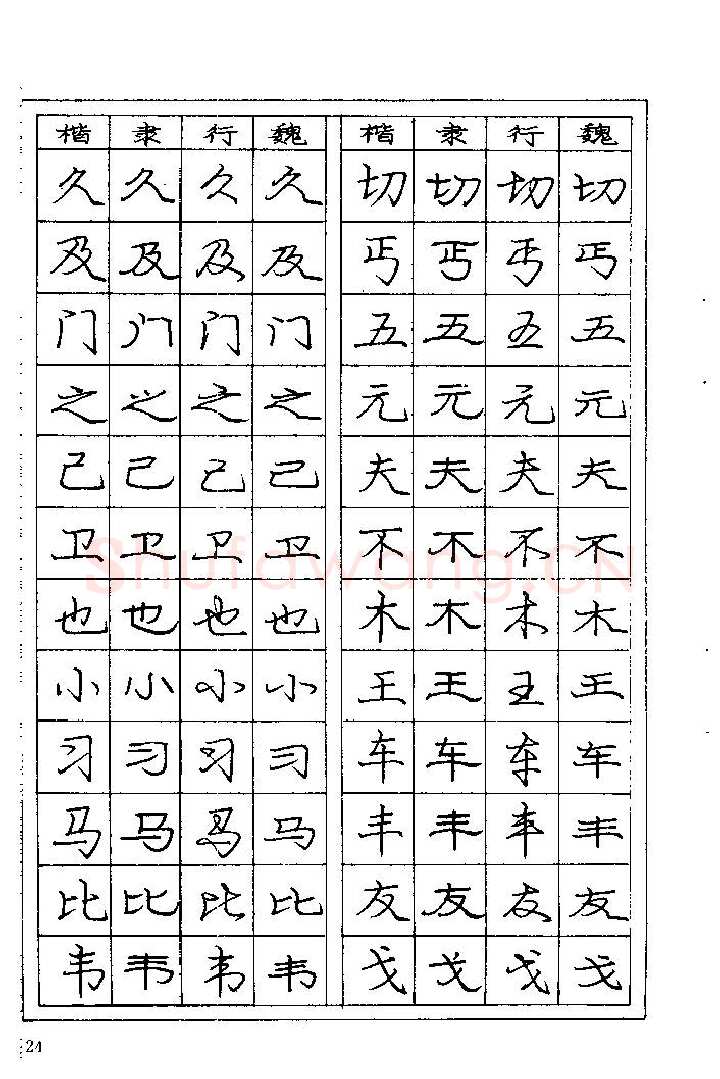 楷 隶 行 魏 楷 隶 行 魏
久 久 久 久 切 切 切 切
及 及 及 及 丐 丐 丐 丐
门 门 门 门 五 五 五 五
之 之 之 之 元 元 元 元
己 己 己 己 夫 夫 夫 夫
卫 卫 卫 卫 不 不 不 不
也 也 也 也 木 木 木 木
小 小 小 小 王 王 王 王
习 习 习 习 车 车 车 车
马 马 马 马 丰 丰 丰 丰
比 比 比 比 友 友 友 友
韦 韦 韦 韦 戈 戈 戈 戈
Shufawang.CN
24